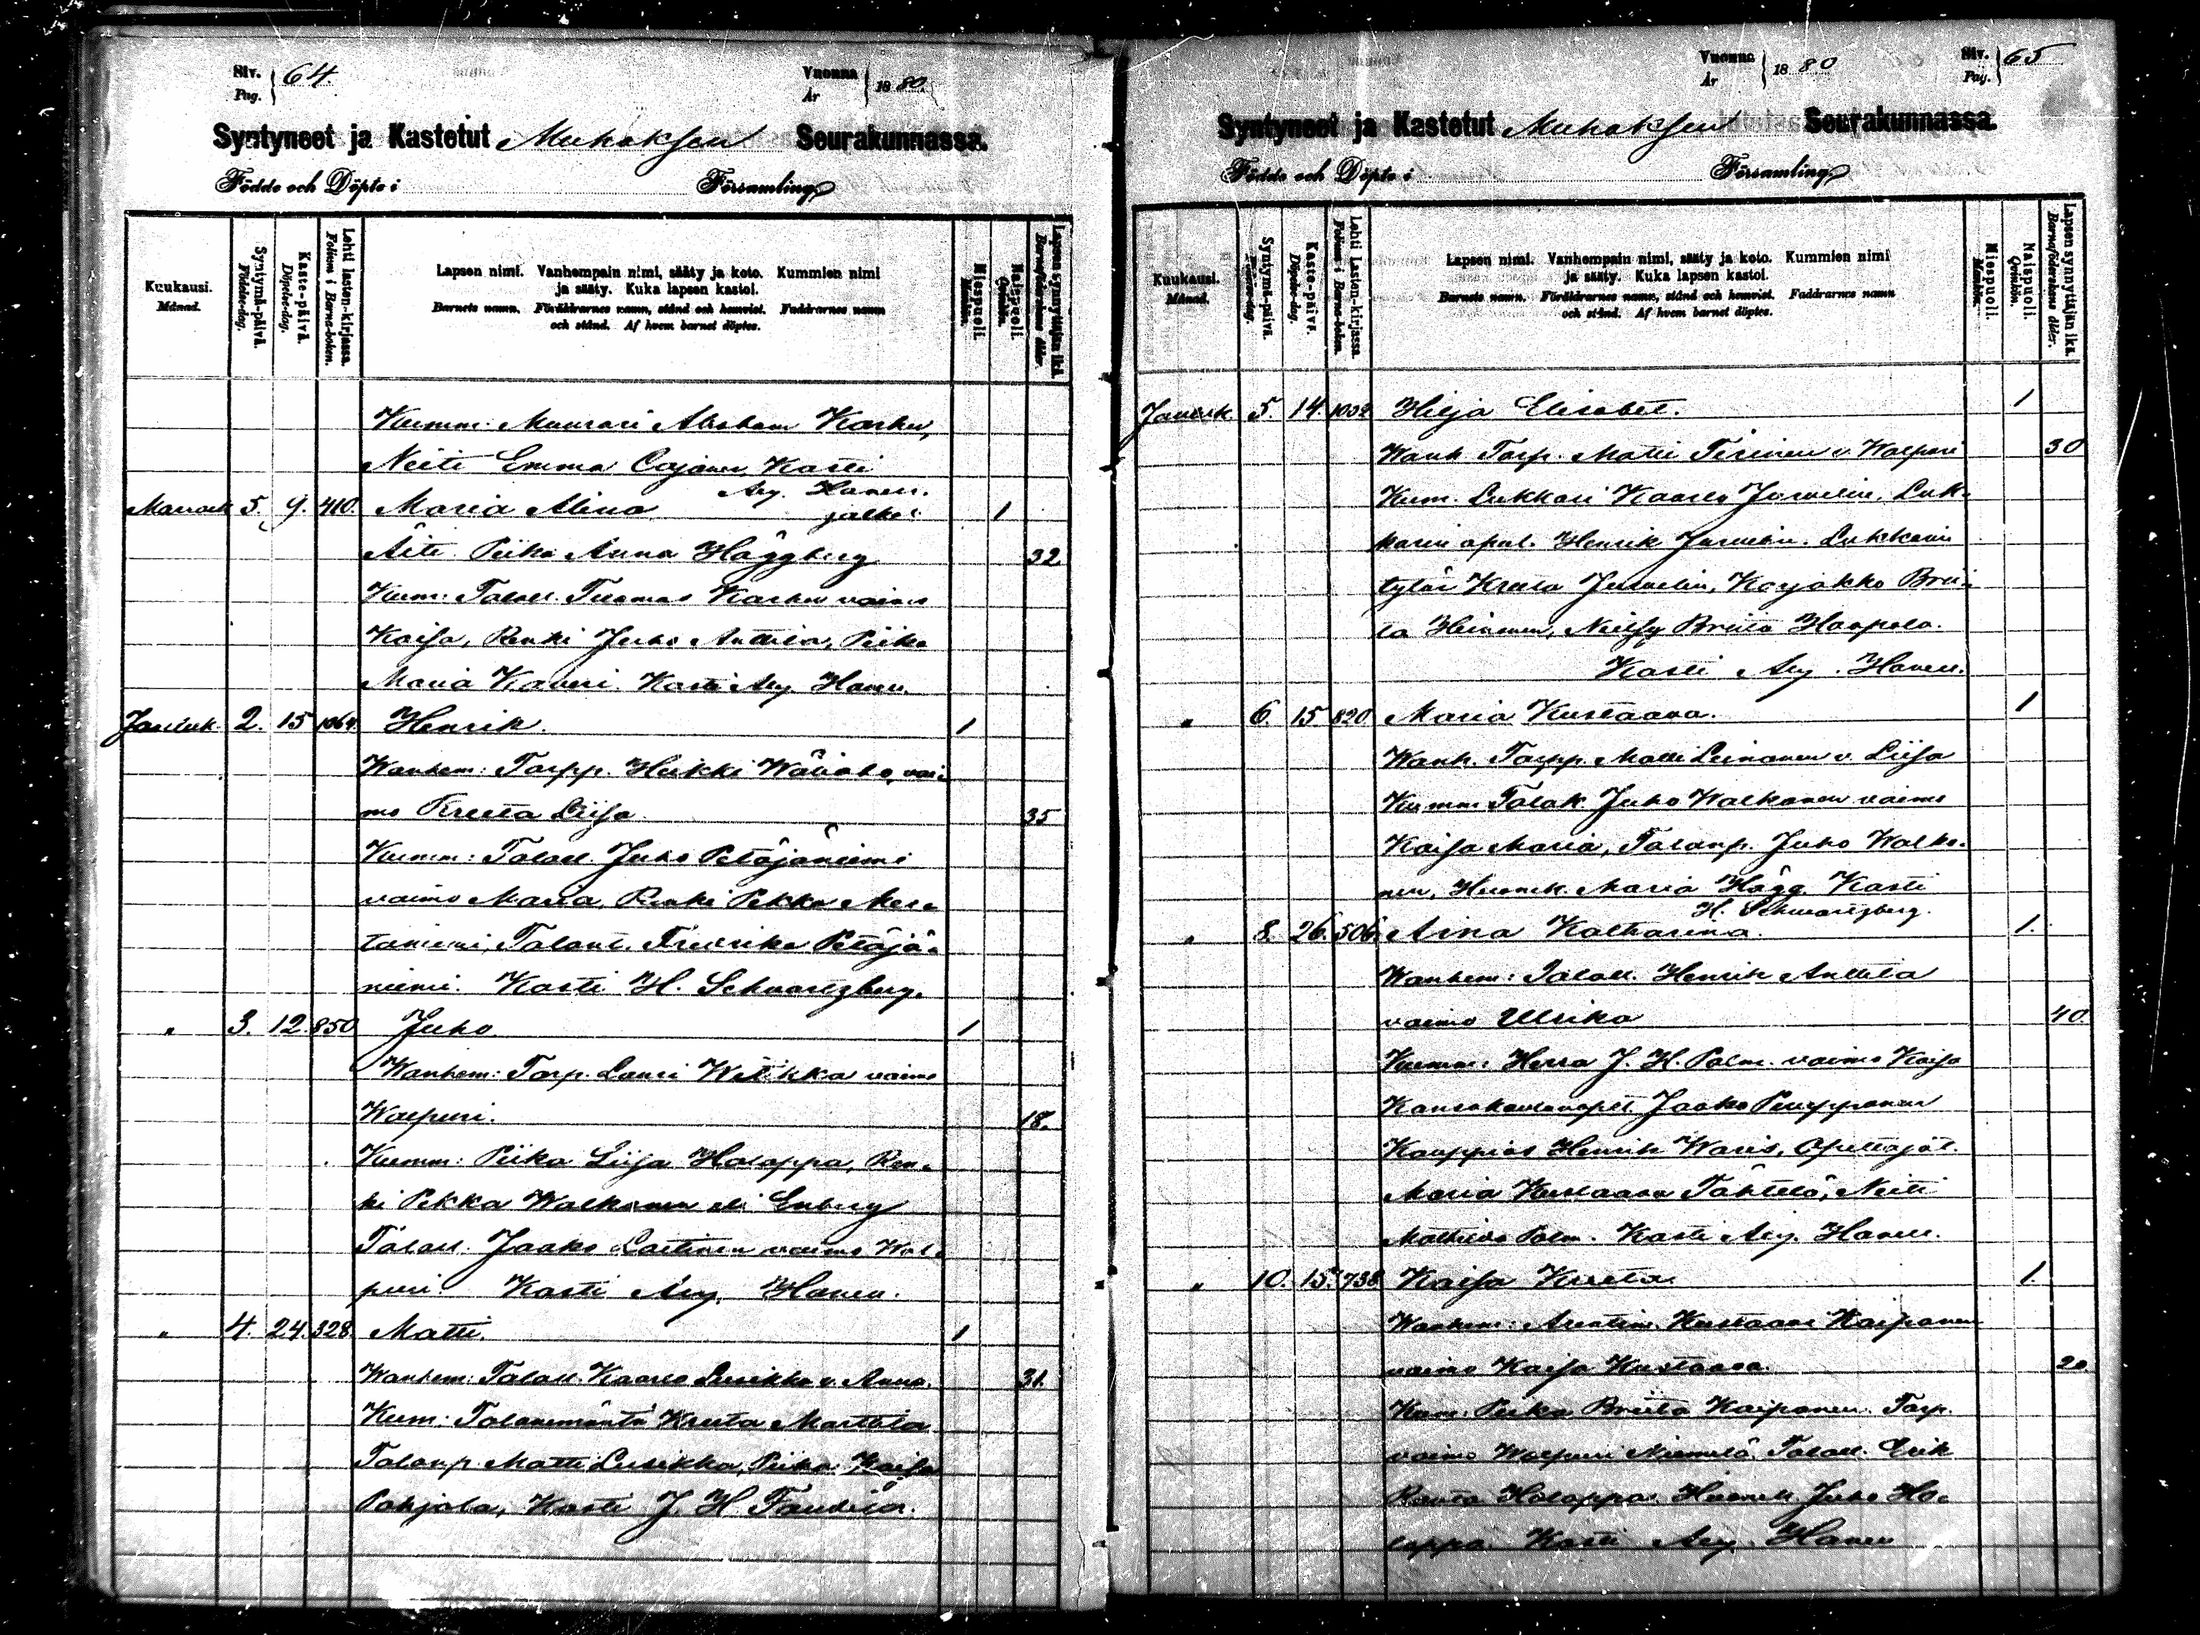 Siv. 64.
Pag.
Vuonna 1880.
År
Syntyneet ja Kastetut Muhoksen Seurakunnassa.
Födde och Döpte i Församling
Kuukausi. Månad.
Syntymä-päivä. Födelse-dag.
Kaste-päivä. Döpelse-dag.
Lehti lasten-kirjassa. Folium i Barna-boken.
Lapsen nimi. Vanhempain nimi, sääty ja koto. Kummien nimi
ja sääty. Kuka lapsen kastoi.
Barnets namn. Föräldrarnes namn, stånd och hemvist. Faddrarnes namn
och stånd. Af hvem barnet döptes.
Miespuoli. Mankön.
Naispuoli. Qvinkön.
Lapsen synnyttäjän ikä. Barnaföderskans ålder.
Kumm: Muurari Abraham Karhu,
Neiti Emma Cajaner Kasti
Aey. Hanell.
Marrask 5. 9. 410. Maria Alina jälke: 1
Äiti Piika Anna Häggberg 32.
Kum: Talall. Tuomas Karhu vaimo
Kaisa, Renki Juho Anttila, Piika
Maria Kaveri. Kasti Aey Hanell.
Jouluk. 2. 15 1064. Henrik. 1
Wanhem: Torpp. Heikki Wäiaho, vai-
mo Kreeta Liisa 35
Kumm: Talall. Juho Petäjäniemi
vaimo Maria, Renki Pekka Mer-
taniemi, Talont. Fredrika Petäjä-
niemi. Kasti H. Schwartzberg.
" 3. 12. 850 Juho 1
Wanhem: Torp. Lauri Witikka vaimo
Walpuri. 18.
Kumm: Piika Liisa Holappa, Ren-
ki Pekka Walkonen eli Enberg
Talall. Jaako Laitinen vaimo Wal-
puri Kasti Aey. Hanell.
" 4. 24. 328. Matti. 1
Wanhem: Talall. Kaarlo Lusikka v. Anna. 31.
Kum: Talonemäntä Kreeta Marttila
Talonp. Matti Lusikka, Piika Kaisa
Pohjola, Kasti J. H.
Vuonna 1880
År
Siv. 65
Pag.
Syntyneet ja Kastetut Muhoksen Seurakunnassa.
Födde och Döpte i Församling
Kuukausi. Månad.
Syntymä-päivä.
Kaste-päivä. Döpelse-dag.
Lehti Lasten-kirjassa. Folium i Barna-boken.
Lapsen nimi. Vanhempain nimi, sääty ja koto. Kummien nimi
ja sääty. Kuka lapsen kastoi.
Barnets namn. Föräldrarnes namn, stånd och hemvist. Faddrarnes namn
och stånd. Af hvem barnet döptes.
Miespuoli. Mankön.
Naispuoli. Qvinkön.
Lapsen synnyttäjän ikä. Barnaföderskans ålder.
Jouluk. 5. 14. 1032 Hilja Elisabet. 1
Wanh. Torp. Matti Tirinen v. Walpuri 30
Kum. Lukkari Kaarlo Jurvelin, Luk-
karin apul. Henrik Jurvelin. Lukkarin
tytär Kreeta Jurvelin, Karjakko Brii-
ta Heinonen, Neitsy Briita Haapala.
Kasti Aey. Hanell.
" 6. 15 820 Maria Kustaava. 1
Wanh. Torpp. Matti Leinonen v. Liisa
Kumm Talok. Juho Walkonen vaimo
Kaisa Maria, Talonp. Juho Walko-
nen, Maria Hägg. Kasti
H. Schwartzberg.
" 8. 26. 506. Aina Katharina. 1.
Wanhem: Talall. Henrik Anttila
vaimo Ulrika 40
Kumm: Herra J. H. Palm. vaimo Kaisa
Kansakoulunopet. Jaako Pemppanen
Kauppias Henrik Waris, Opettajat.
Maria Kustaava Tähtelä, Neiti
Mathilda Palm. Kasti Aey. Hanell.
" 10. 15. 738 Kaisa Kreeta. 1.
Wanhem: Arentim. Kustaavi Kaiponen
vaimo Kaisa Kustaava. 20.
Kum: Piika Briita Kaiponen. Torp.
vaimo Walpuri Niemelä. Talall. Erik
Ranta Holappa. Juho Ho-
lappa. Kasti Aey. Hanell